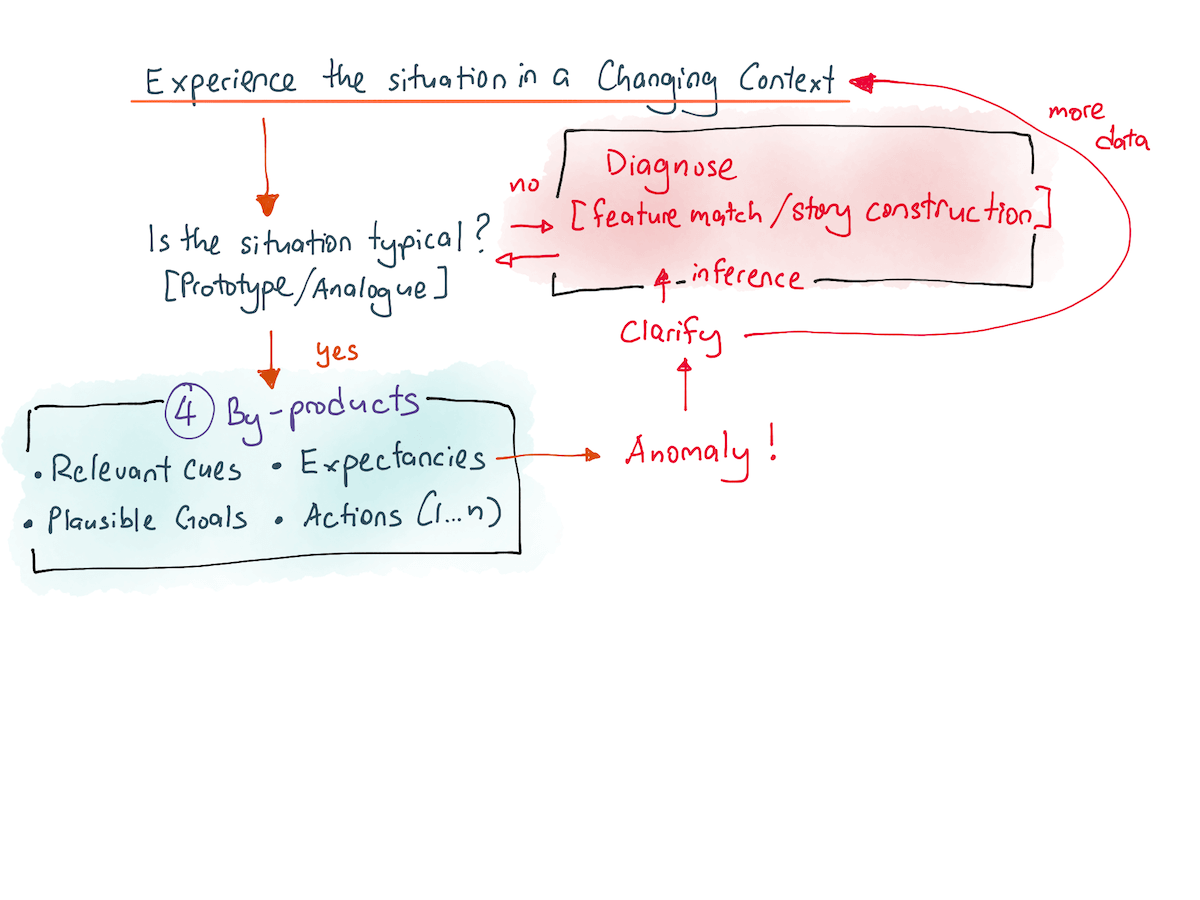 Experience the situation in a Changing Context
more
data
Diagnose
no
[feature match/story construction]
Is the situation typical?
[Prototype/Analogue]
inference
Clarify
yes
4 By-products
• Relevant cues • Expectancies
Anomaly!
• Plausible Goals • Actions (1...n)